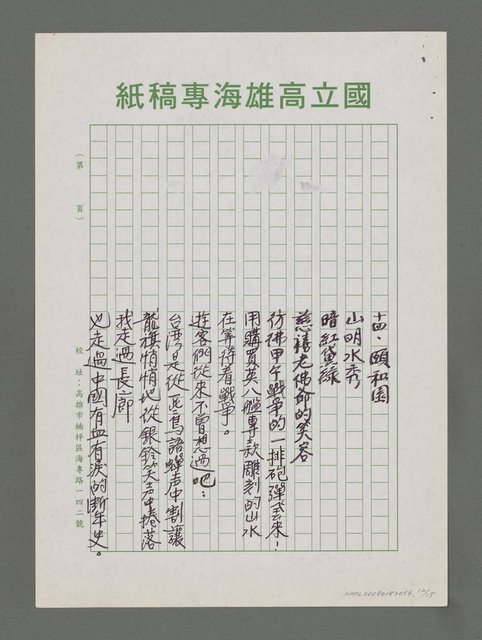 國立高雄海專稿紙
(第　頁)
校址：高雄市楠梓區海專路一四二號
十四、頤和園
山明水秀
暗紅黛綠
慈禧老佛爺的笑容
彷彿甲午戰爭的一排砲彈丟來，
用購買英八艦專款雕刻的山水
在等待着戰爭。
遊客們從來不曾想過吧：
台湾是從一死鳥語蟬声中割讓
龍旗悄悄地從銀鈴笑声中捲落
我走過長廊
也走過中國有血有淚的断年史。